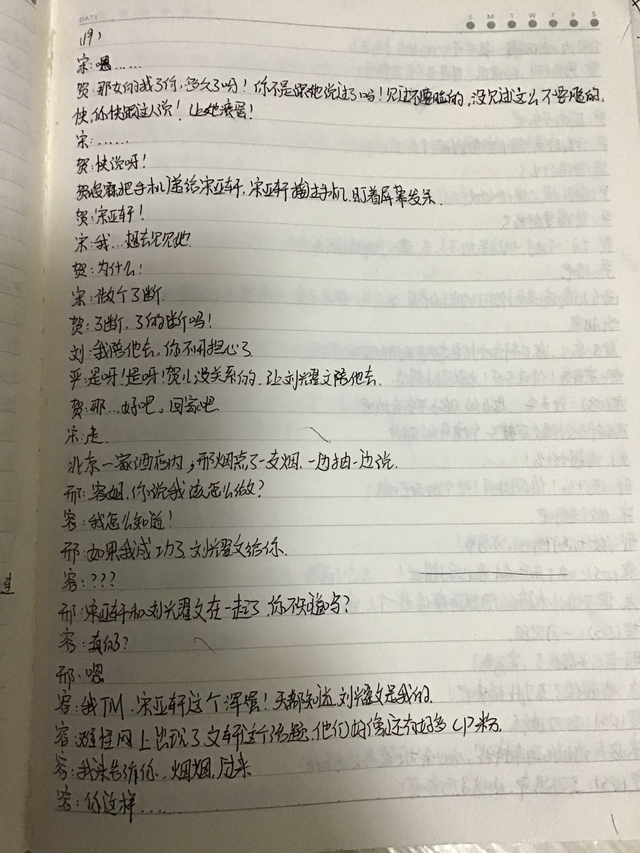 DATE
S M T W T F S
(19)
宋:嗯……
贺:那女的找了你,多久了呀!你不是跟他说过了吗!见过不要脸的,没见过这么不要脸的,
快,你快跟这人说!让她滚蛋!
宋:……
贺:快说呀!
贺峻霖把手机递给宋亚轩,宋亚轩接过手机,盯着屏幕发呆
贺:宋亚轩!
宋:我…想去见见她
贺:为什么!
宋:做个了断
贺:了断,了的断吗!
刘:我陪他去,你不用担心了
严:是呀!是呀!贺儿没关系的,让刘耀文陪他去
贺:那…好吧,回家吧
宋:走
北京一家酒店内,邢烟点了一支烟,一边抽一边说
邢:容姐,你说我该怎么做?
容:我怎么知道!
邢:如果我成功了,刘耀文给你
容:???
邢:宋亚轩和刘耀文在一起了,你不知道吗?
容:真的?
邢:嗯
容:我TM,宋亚轩这个浑蛋!天都知道,刘耀文是我的
容:难怪网上出现了文轩这个话题,他们的确还有好多CP粉
容:我来告诉你,烟烟,过来
容:你这样……